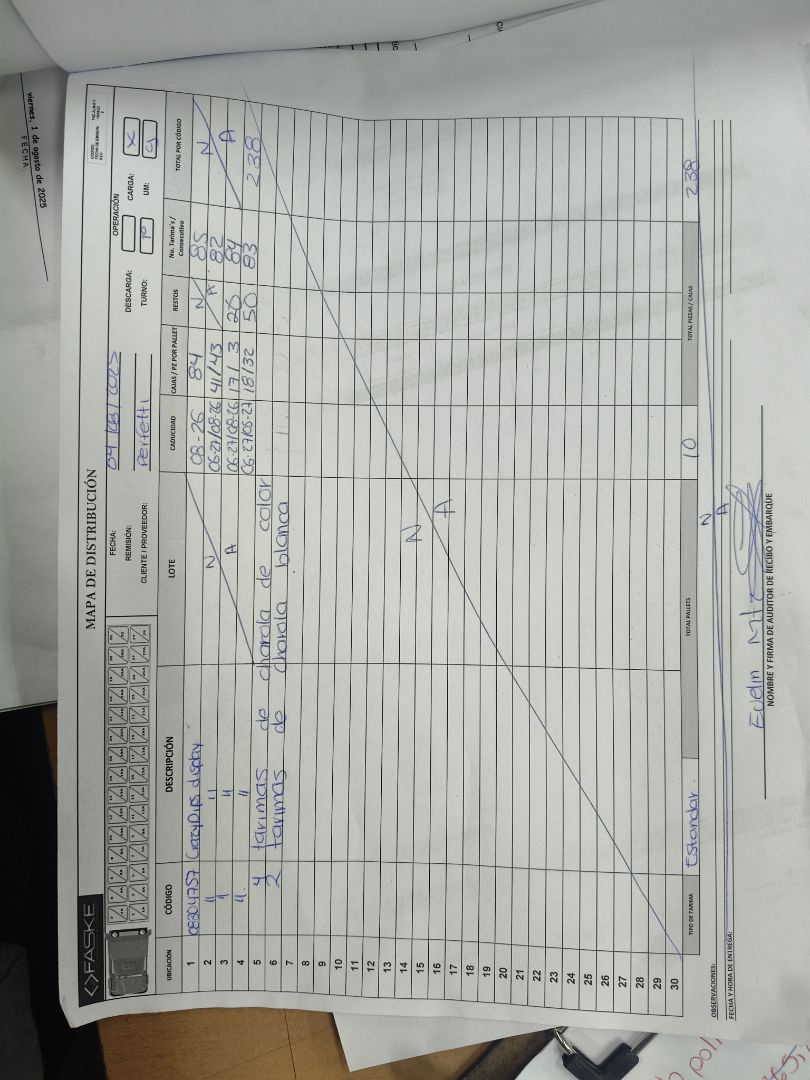 viernes, 1 de agosto de 2025
FECHA
FASKE
MAPA DE DISTRIBUCIÓN
FECHA: 04/08/2025
REMISIÓN:
CLIENTE / PROVEEDOR: Perfetti
OPERACIÓN
DESCARGA: CARGA: X
TURNO: 1º UM:
UBICACIÓN CÓDIGO DESCRIPCIÓN LOTE CADUCIDAD CAJAS / PZ POR PALLET RESTOS No. Tarima's / Consecutivo TOTAL POR CÓDIGO
1 08804757 Crazy Dips display 08-26 84 N 85
2 " " N 06-27/08-26 41/43 A 82 N
3 " " A 06-27/08-26 17/3 20 84 A
4 " " 06-27/05-27 18/32 50 83 238
5 4 tarimas de charola de color
6 2 tarimas de charola blanca
7
8
9
10
11
12
13
14 N
15
16 A
17
18
19
20
21
22
23
24
25
26
27
28
29
30
TIPO DE TARIMA Estandar. TOTAL PALLETS 10 TOTAL PIEZAS / CAJAS 238
OBSERVACIONES: N
FECHA Y HORA DE ENTREGA: A
Evelin Mtz
NOMBRE Y FIRMA DE AUDITOR DE RECIBO Y EMBARQUE